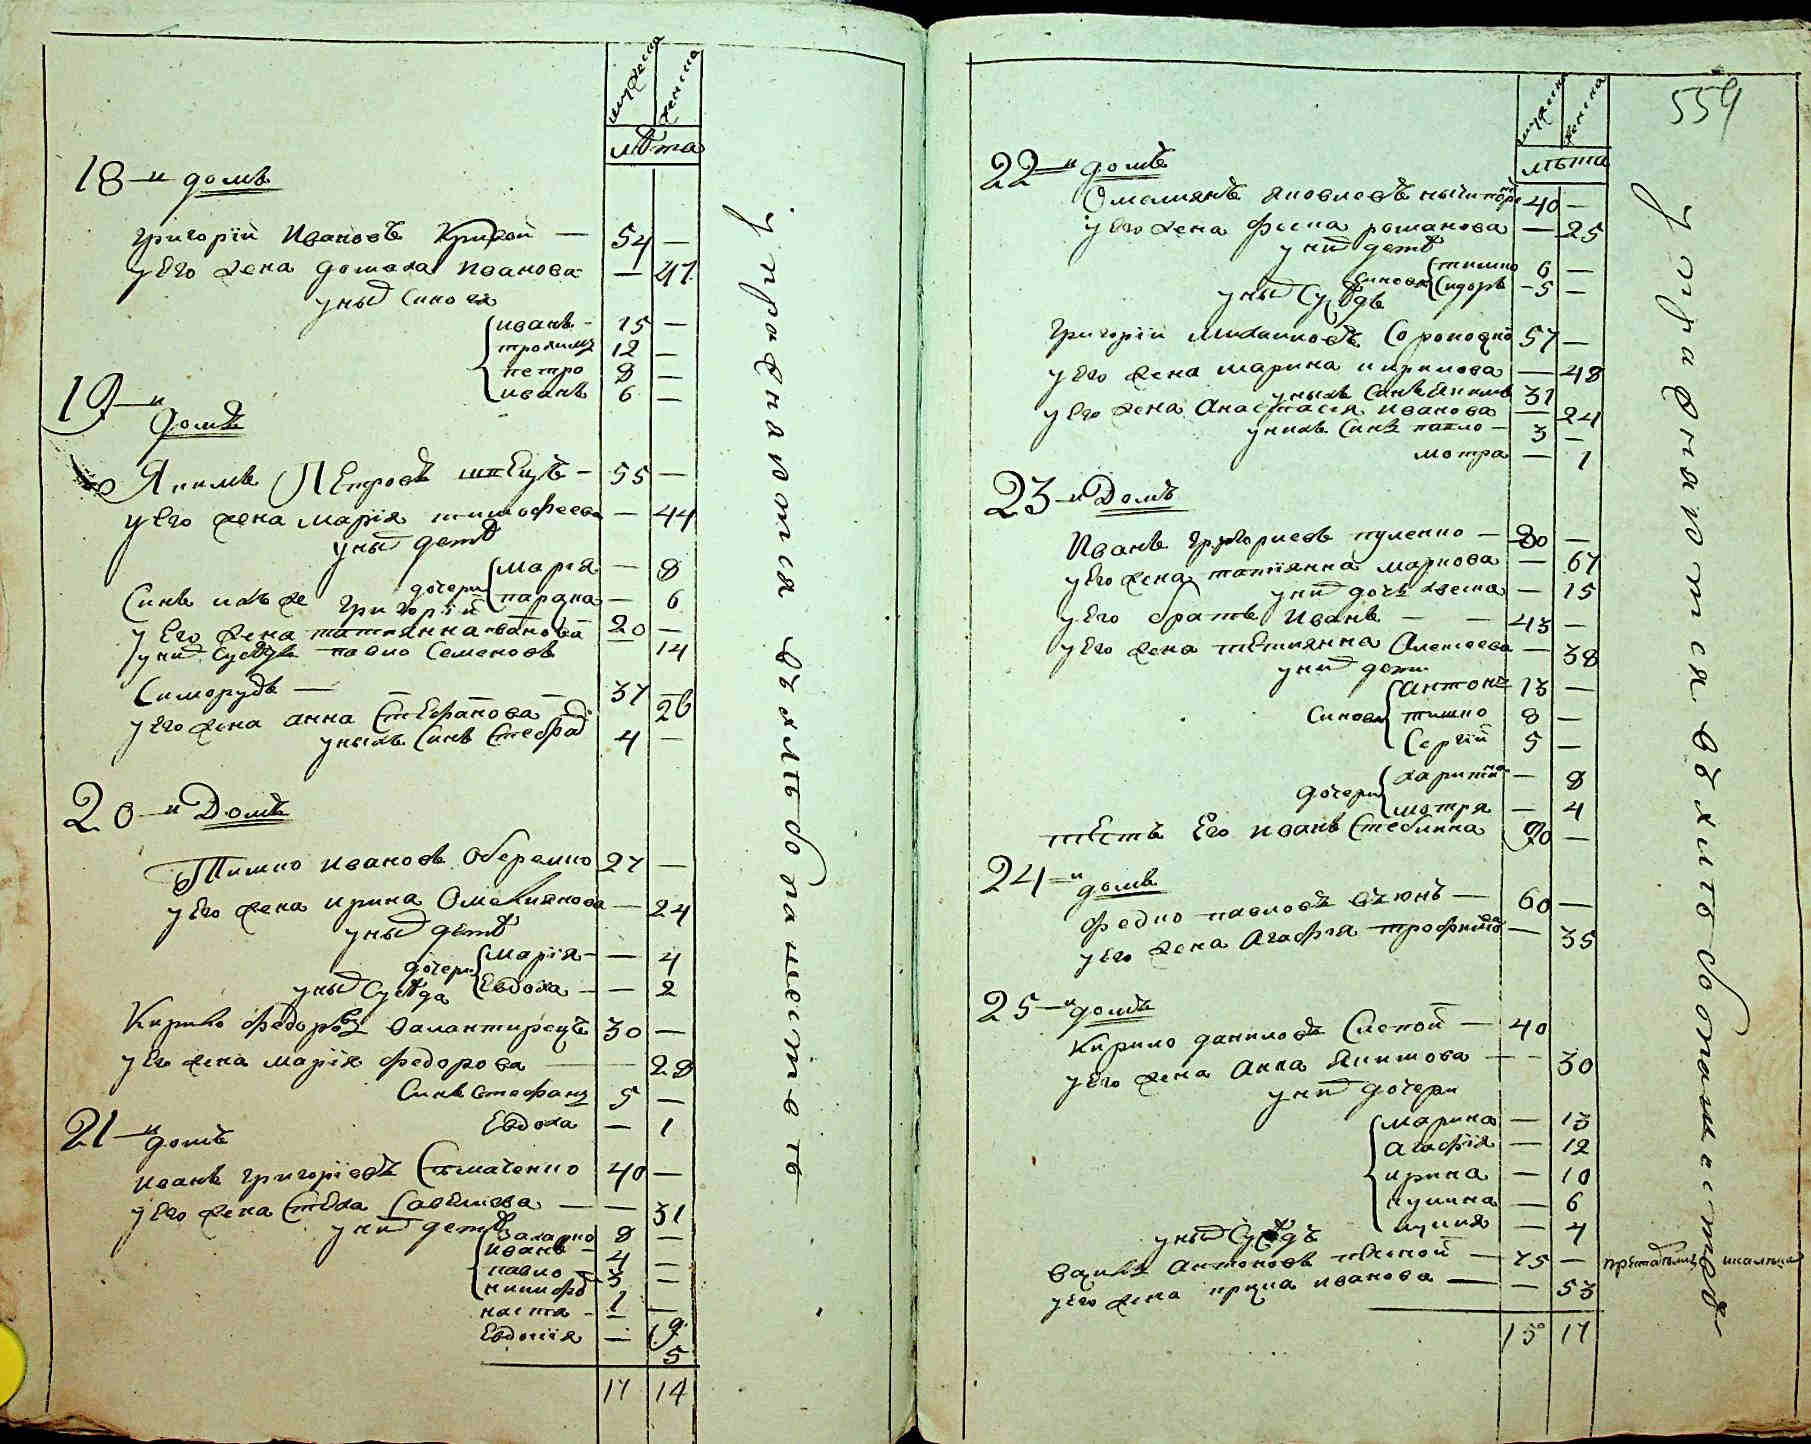 мужеска женска
лѣта
18-и домъ
григорій Ивановъ Кривой — 54 —
у Его жена домаха Иванова — 47
у ных Синовя
иванъ - 15 —
трохимъ 12 —
петро 8 —
иванъ 6 —
19-и
домъ
Якимъ Петровъ швецъ - 55 —
у Его жена марія тимофеева — 44
у них детѣ
дочери марія — 8
параска — 6
Синъ их же григорій 20 —
у Его жена татиянна иванова — 19
у них Сусѣдъ павло Семеновъ
Симорудъ — 37
у Его жена анна Стефанова — 26
у ныхъ Синъ Стефан 4 —
20-и Домъ
Тишко Ивановъ Оберемко 27 —
у Его жена ирина Омелиянова — 24
у ных детѣ
дочери марія — 4
Евдоха — 2
у ных Сусѣда
Кирило Федоровъ валантирецъ 30 —
у Его жена марія федорова — 28
Синъ Стефанъ 5 —
Евдоха — 1
21-и домъ
иванъ григоріевъ 40 —
у Его жена Стеха Савелиева — 31
у них детѣ
захарко 8 —
иванъ - 4 —
павло 3 —
никифор 1 —
наста - —
Евдокія — 9
5
17 14
упражнаются въ хлѣбопашествѣ
559
мужеска женска
лѣта
22-и домъ
Омелиянъ яковлевъ 40 —
у Его жена фесна романова — 25
у них детѣ
Синовя тишко 6 —
Сидоръ - 5 —
у ных Сусѣдъ
григорій Михаиловъ 57 —
у Его жена марина кирилова — 48
у ныхъ Синъ Якимъ 31
у Его жена Анастасія иванова — 24
у нихъ Синъ павло - 3 —
мотра — 1
23-и Домъ
Иванъ григориевъ куленко - 80 —
у Его жена татиянна маркова — 67
у них дочь — 15
у Его братъ Иванъ — 43 —
у Его жена тетиянна Алексеева — 38
у них дети
Синовя антонъ 13 —
тишко 8 —
Сергій 5 —
дочери харитина — 8
мотря — 4
тесть Его иванъ Стеблина 90 —
24-и
домъ
федко павловъ вюнъ — 60 —
у Его жена Агафія трофимова — 35
25-и домъ
Кирило даниловъ Слепой — 40
у Его жена Анна Якимова — 30
у них дочери
марина — 13
агафія — 12
ирина — 10
кулина — 6
лукия — 4
у ных Сусѣдъ
Антоновъ — 75 —
у Его жена ирина иванова — 53
15 17
упражняются въ хлѣбопашествѣ